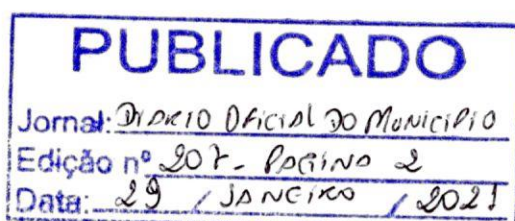 PUBLICADO
Jornal: DIARIO OFICIAL DO MUNICIPIO
Edição nº 207 - PAGINA 2
Data: 29 / JANEIRO / 2021